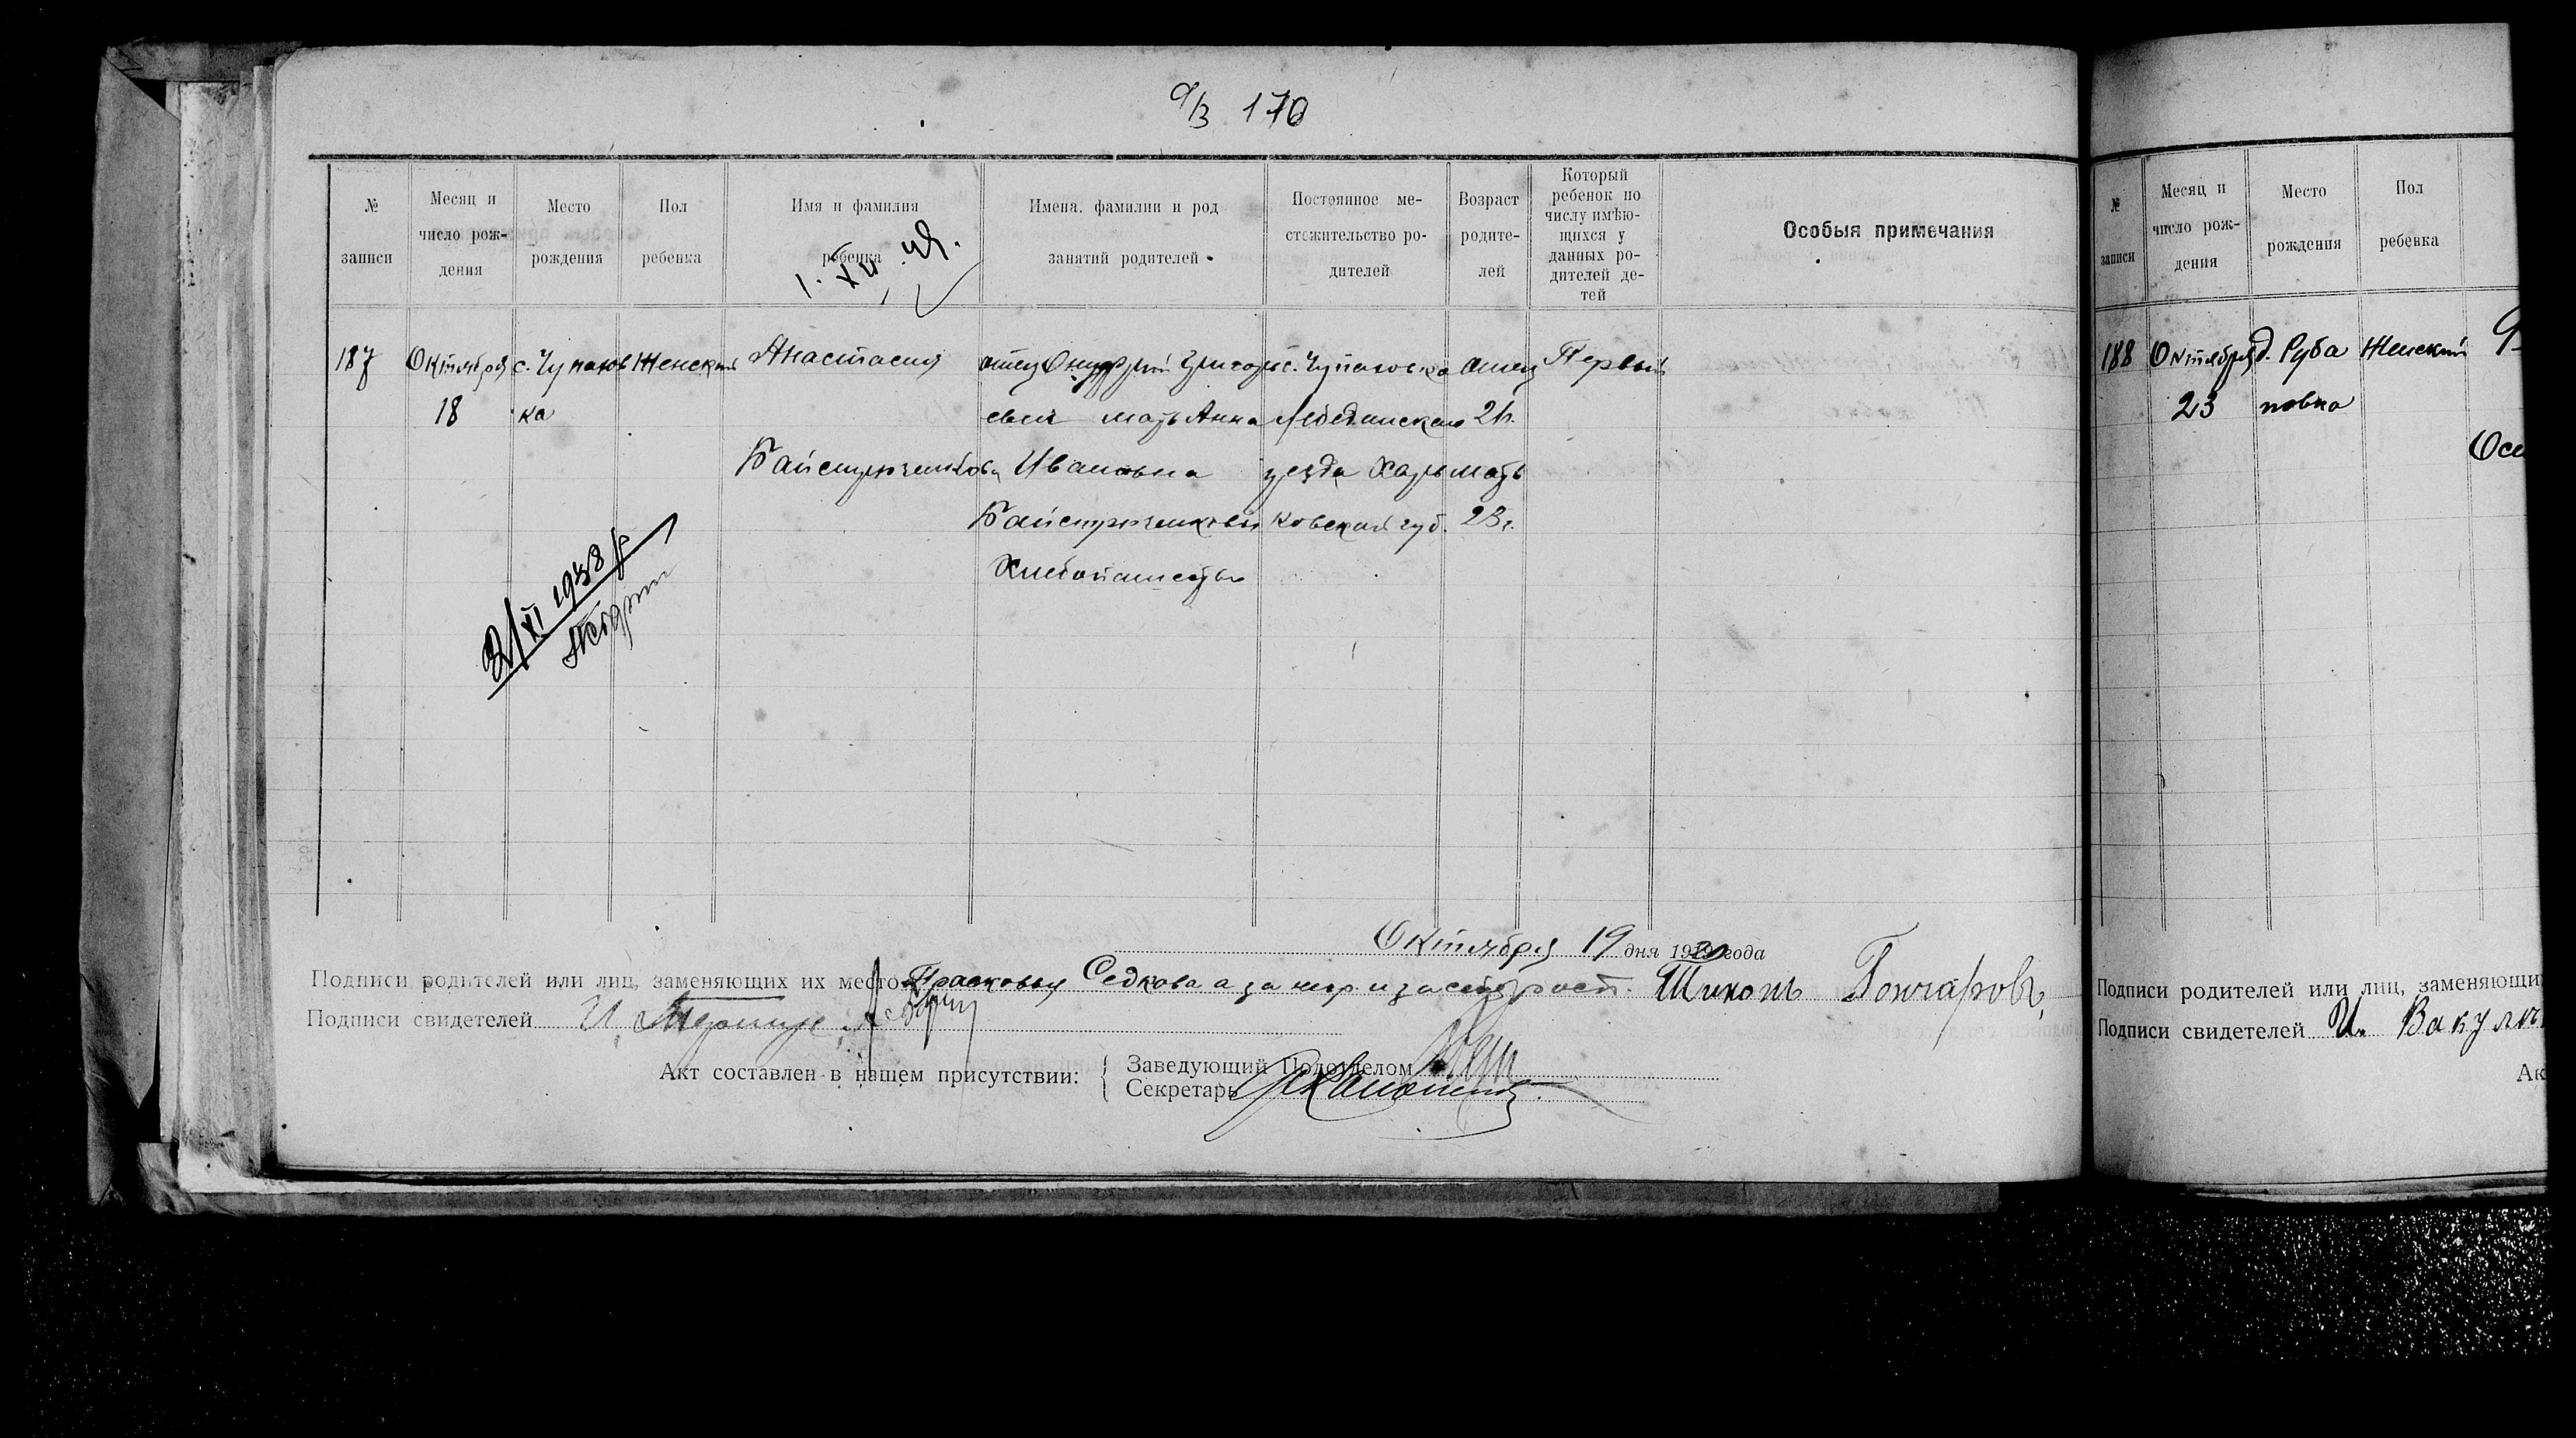 а/з 170
№ записи
Месяц и число рождения
Место рождения
Пол ребенка
Имя и фамилия ребенка
Имена, фамилии и род занятий родителей
Постоянное местожительство родителей
Возраст родителей
Который ребенок по числу имѣющихся у данных родителей детей
Особыя примечания
187
Октября
18
с. Чупахов
ка
Женский
Анастасия
отец Онуфрий Григорь
евич мать Анна
Ивановна
Хлебопашество
с. Чупаховка
Лебединскаго
уезда Харь
ковской губ.
отец
мать
23 г.
Первый
Октября 19 дня года
Подписи родителей или лиц, заменяющих их место Прасковья Седкова а за негр Тихон Гончаровъ
Подписи свидетелей И.
Акт составлен в нашем присутствии:
Заведующий Подотделом
Секретарь
№ записи
Месяц и число рождения
Место рождения
Пол ребенка
188
Октября
23
д. Руба
новка
Женский
Подписи родителей или лиц, заменяющи
Подписи свидетелей И. Вакулен
Ак